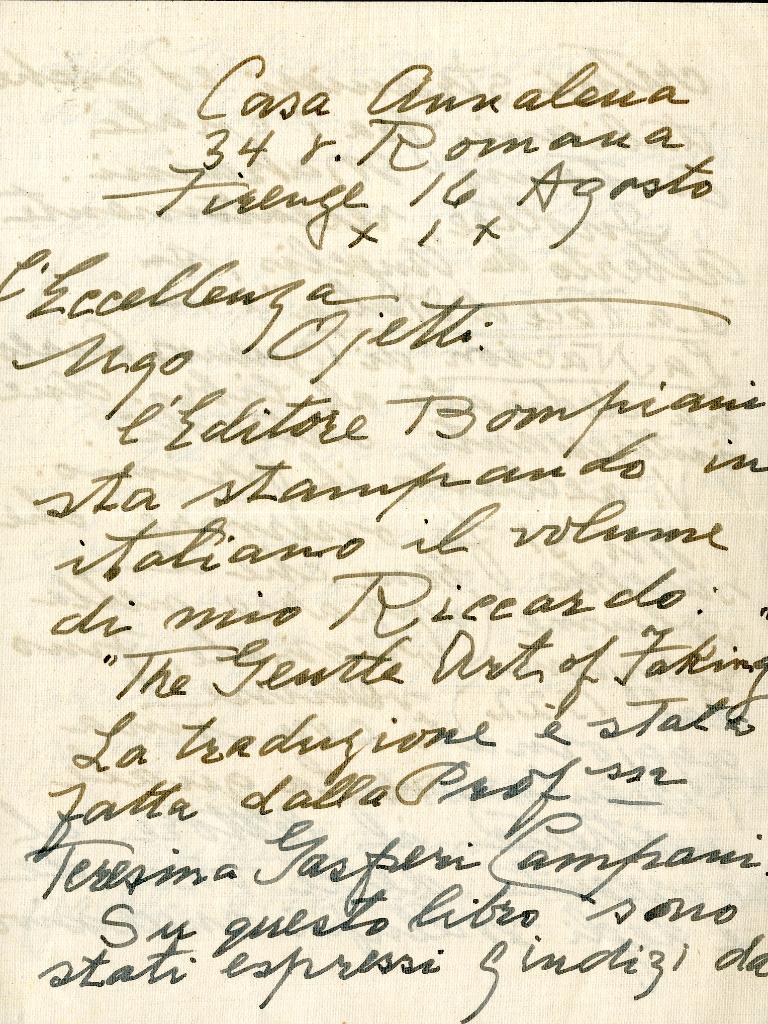 Casa Annalena
34 v. Romana
Firenze 16 Agosto
x 1 x
L'Eccellenza
Ugo Ojetti.
l'Editore Bompiani
sta stampando in
italiano il volume
di mio Riccardo:
"The Gentle Art of Faking"
La traduzione è stata
fatta dalla Prof ssa
Teresina Gasperi Campani.
Su questo libro sono
stati espressi giudizi da